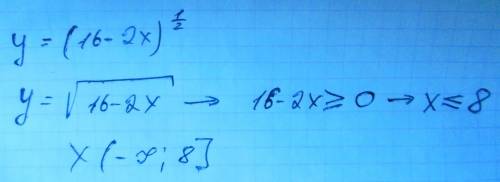 y = (16-2x)^{1/2}
y = √(16-2x) → 16-2x ≥ 0 → x ≤ 8
x (-∞; 8]